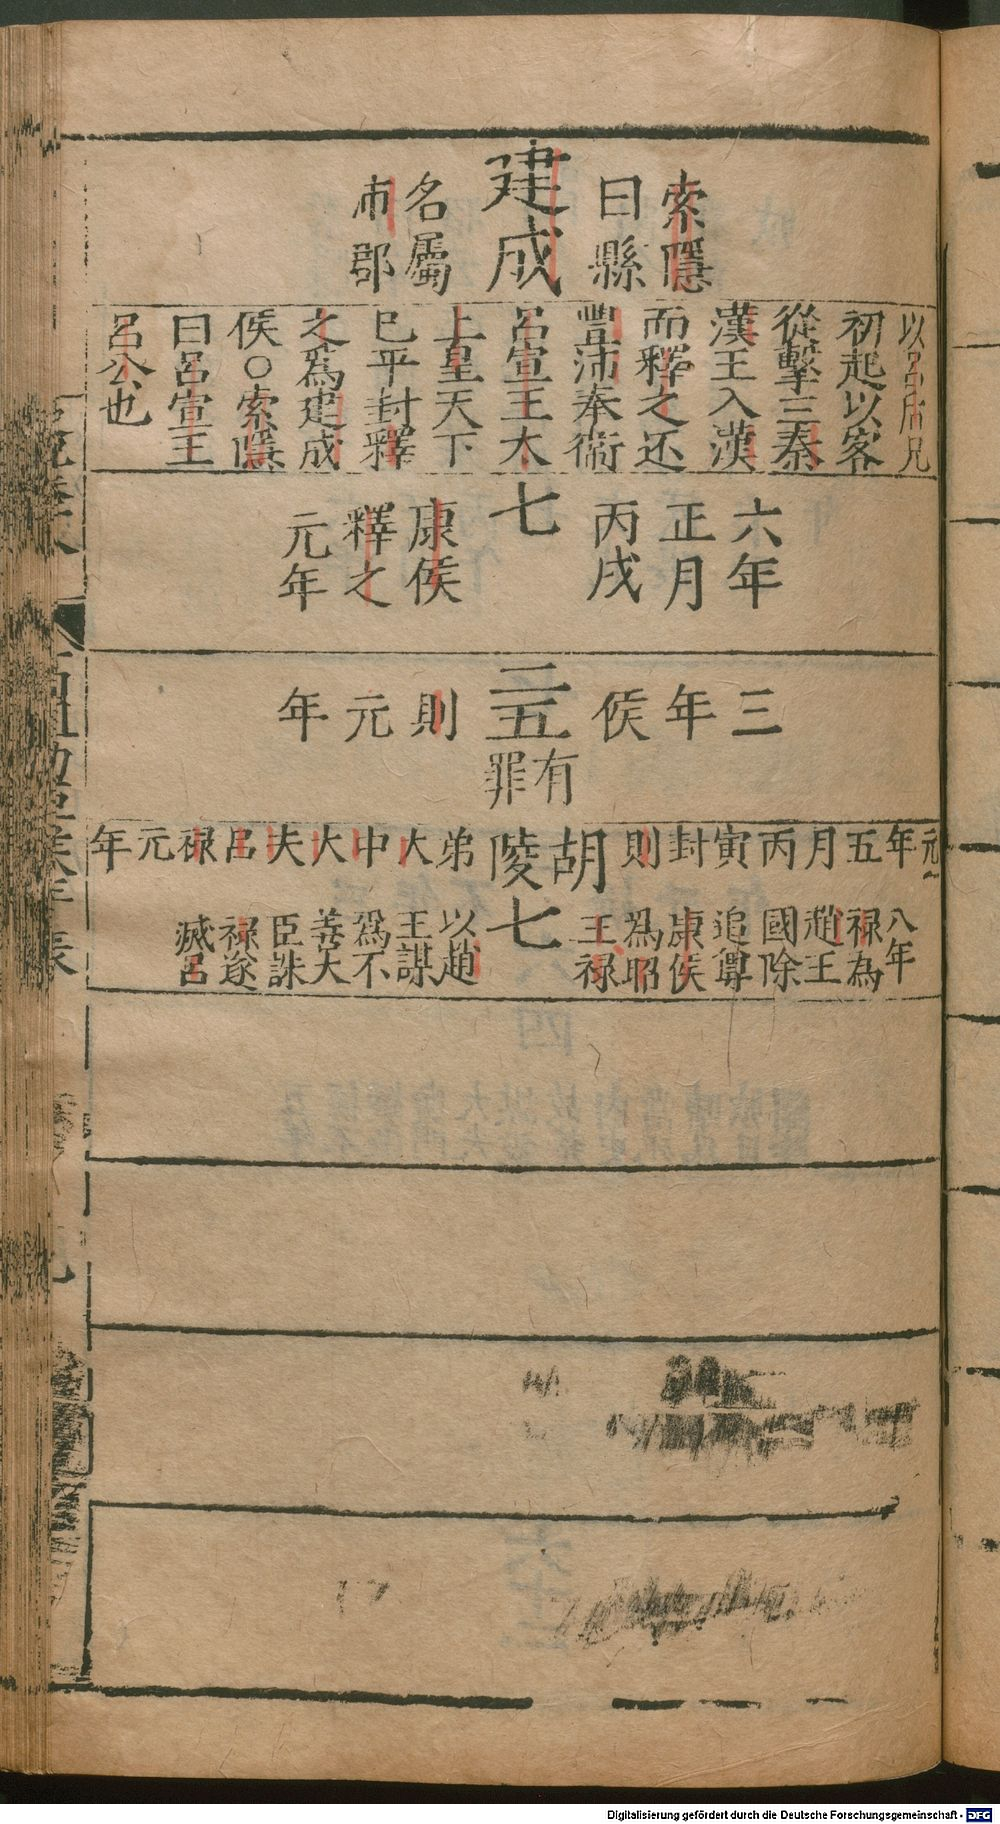 索隱
曰縣
建成
名屬
市郡
以呂后兄
初起以客
從擊三秦
漢王入漢
而釋之还
豐沛奉衞
呂宣王大
上皇天下
巳平封釋
之爲建成
侯○索隱
曰呂宣王
呂公也
六年
正月
丙戌
七
康侯
釋之
元年
三年侯
二五
有
罪
則元年
元年五月丙寅封則
胡
陵
弟大中大大夫呂祿元年
八年
祿為
趙王
國除
追尊
康侯
為昭
王祿
七
以趙
王謀
為不
善大
臣誅
祿遂
滅呂
Digitalisierung gefördert durch die Deutsche Forschungsgemeinschaft - DFG